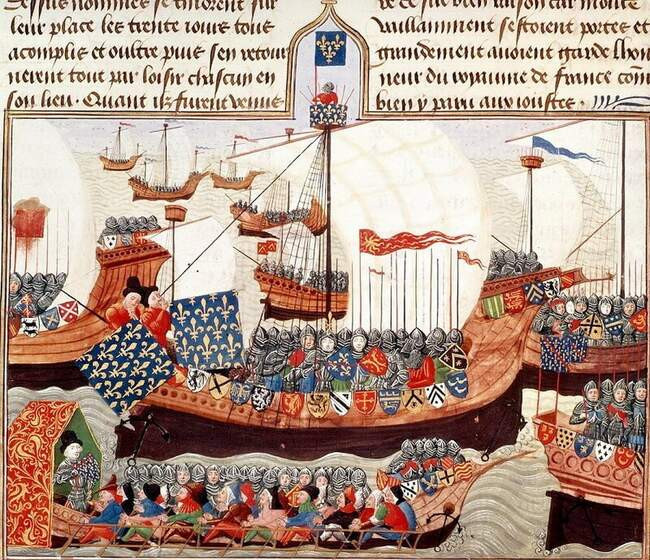 Dessus nommes se tindrent sur
leur place les trente iours tous
acomplis et oultre puis sen retour
nerent tout par loisir chascun en
son lieu. Quant ilz furent venus
bien raison car moult
vaillamment sestoient portes et
grandement auoient garde lhon
neur du royaume de france com
bien y paru aux ioustes.